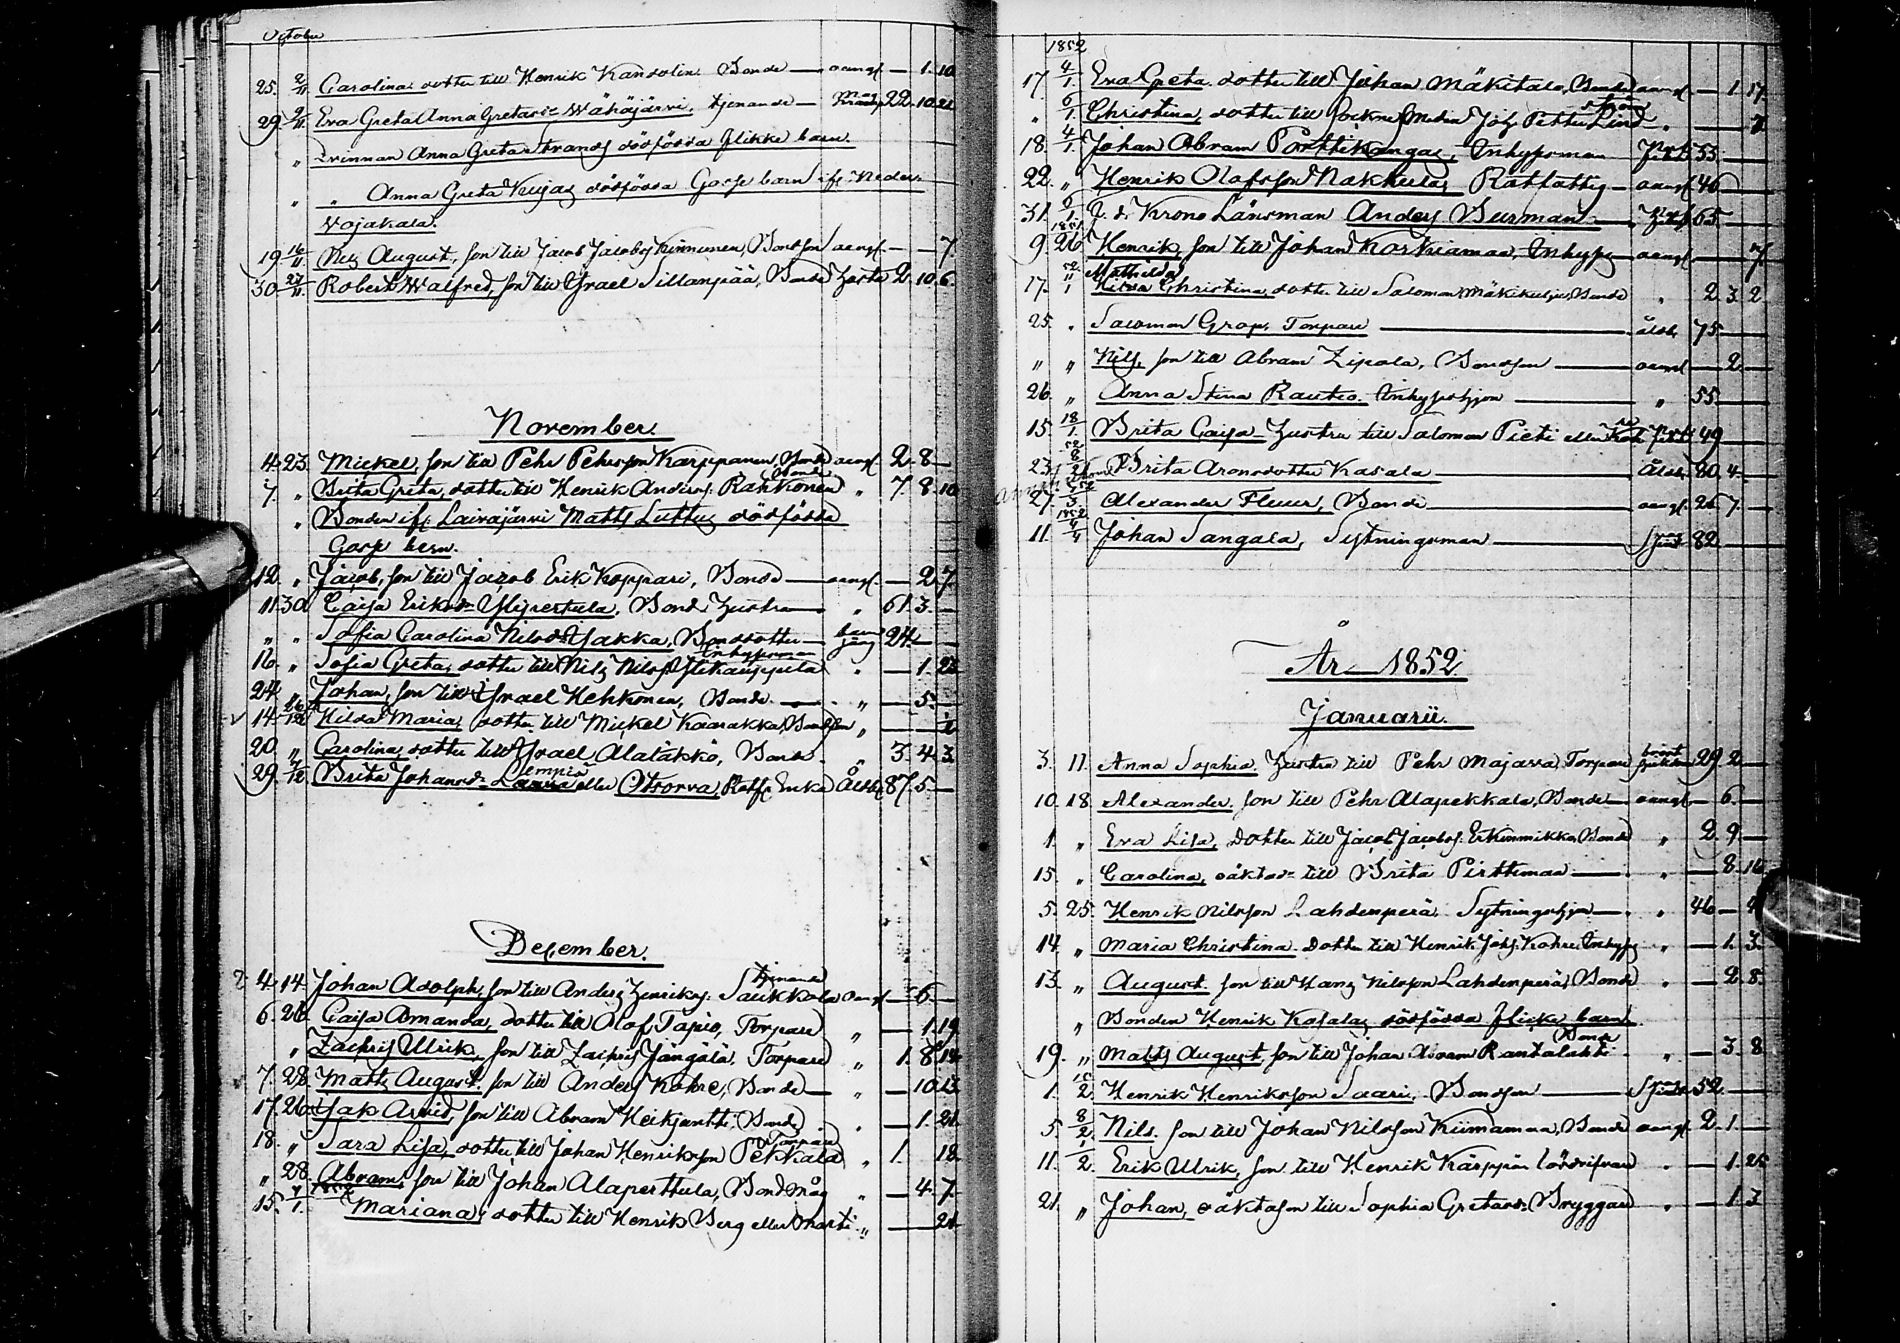 October
25. 2/11 Carolina dotter till Henrik Kandolin Bonde aangf — 1. 10
29 9/11 Eva Greta Anna Gretasdr Wähäjärvi, tjenande 22. 10. 22
" Qvinnan Anna Greta Strands dödfödda flikke barn.
" " Anna Greta Kujas dödfödda Gosse barn ifr. Neder
Wojakala.
19 16/11 Nils August, son till Jacob Jacobss Kinnunen, Bondson aangf — 7.
30 27/11 Robert Walfred, son till Israel Sillanpää, Bonde hosta 2. 10. 6.
November.
4. 23. Mickel, son till Pehr Pehrsson Karppanen, Bonde aangf 2. 8
7. " Brita Greta, dotter till Henrik Anderss. Rahkonen Bonde " 7. 8. 10
" Bonden ifr. Laivajärvi Matts Luttus dödfödde
Gosse barn.
12. " Jacob, son till Jacob Erik Koppari, Bonde aangf. — 2. 7.
11. 30 Caisa Eriksdr Ylipertula, Bond hustru " 61. 3.
" " Sofia Carolina Nilsdr Jakka, Bonddotter 24
16. " Sofia Greta, dotter till Nils Nilss Ylikauppila Inhysman " — 1. 22
24. " Johan, son till Israel Hehkonen, Bonde " — 5
14. 16/12 Hilda Maria, dotter till Mickel Kaarakka, Bondson " —
20. " Carolina dotter till Israel Alatakko, Bonde " 3. 4. 3
29. 9/12 Brita Johansdr Lempiä eller Otsorva, Rotf. Enka Åldd. 87. 5
December.
4. 14. Johan Adolph, son till Anders Henriks. Saukkola tjenande aangf — 6
6. 26. Caisa Amanda, dotter till Olof Tapio, Torpare " — 1. 19
" Zachris Ulrik, son till Zachris Jängälä, Torpare " 1. 8. 14
7. 28. Matts August, son till Anders Kohre, Bonde " — 10. 13
17. 26. Isak Arvid, son till Abram Heikjantti, Bonde " — 1. 21
18. " Sara Lisa, dotter till Johan Henriksson Pekkala Torpare " 1. 18
" 28. Abram, son till Johan Alaperttula, Bond måg " — 4. 7.
15. 4/1 1852 Mariana, dotter till Henrik Berg eller Martti " — 21
1852
17 4/1 Eva Greta dotter till Johan Mäkitalo, Bonde aangf — 1. 17.
" 6/1 Christina, dotter till Sockne Smeden Joh. Petter Lindström "
18. 4/1. Johan Abram Porttikangas, Inhysman 55
22. " Henrik Olofsson Nakkulas, Rotfattig aangf 46
31. 6/1 T. d. Krono Länsman Anders Burman 65
1851
9. 26 Henrik, son till Johan Korkiamaa, Inhys aangf — 7
17. 11/1 Mathilda Christina, dotter till Salomon Mäkikulju, Bonde " 2. 3. 2
25. " Salomon Grop, Torpare åldd. 75
" " Nils, son till Abram Zipola, Bondson aangf — 2
26. " Anna Stina Rautio. Inhyshjon " 55
15. 18/1 Brita Caisa Hustru till Salomon Pieti eller 49
23. Brita Aronsdotter Kasala Åldd. 80. 4
27. Alexander Fluur, Bonde aangf. 26 7
1852
11. 4/4 Johan Sangala, Sytningsman 82
År 1852
Januarii.
3. 11. Anna Sophia, hustru till Pehr Majava, Torpare bröstsjukdom 29. 2
10. 18. Alexander, son till Pehr Alapekkala, Bonde aangf — 6
1. " Eva Lisa, dotter till Jacob Jacobss. Erkinmikko, Bonde " 2. 9
15. " Carolina, oäkta dr till Brita Pirttimaa " — 8. 16
5. 25. Henrik Nilsson Lahdenperä, Sytningshjon " 46 — 4
14. " Maria Christina dotter till Henrik Johs. Kohre, Inhys " — 1. 3
13. " August son till Hans Nilsson Lahdenperä, Bonde " — 2. 8
" Bonden Henrik Kasalas dödfödda flicke barn
19. " Matts August, son till Johan Abram Rantalahti Bonde " — 3. 8
1. 15/2 Henrik Henriksson Saari, Bondson 52
5. 8/2 Nils, son till Johan Nilsson Kiimamaa, Bonde aangf. 2. 1
11. 1/2 Erik Ulrik, son till Henrik Kärppä " — 1. 25
21. " Johan, oäkta son till Sophia Gretasdr Bryggare " — 1. 3